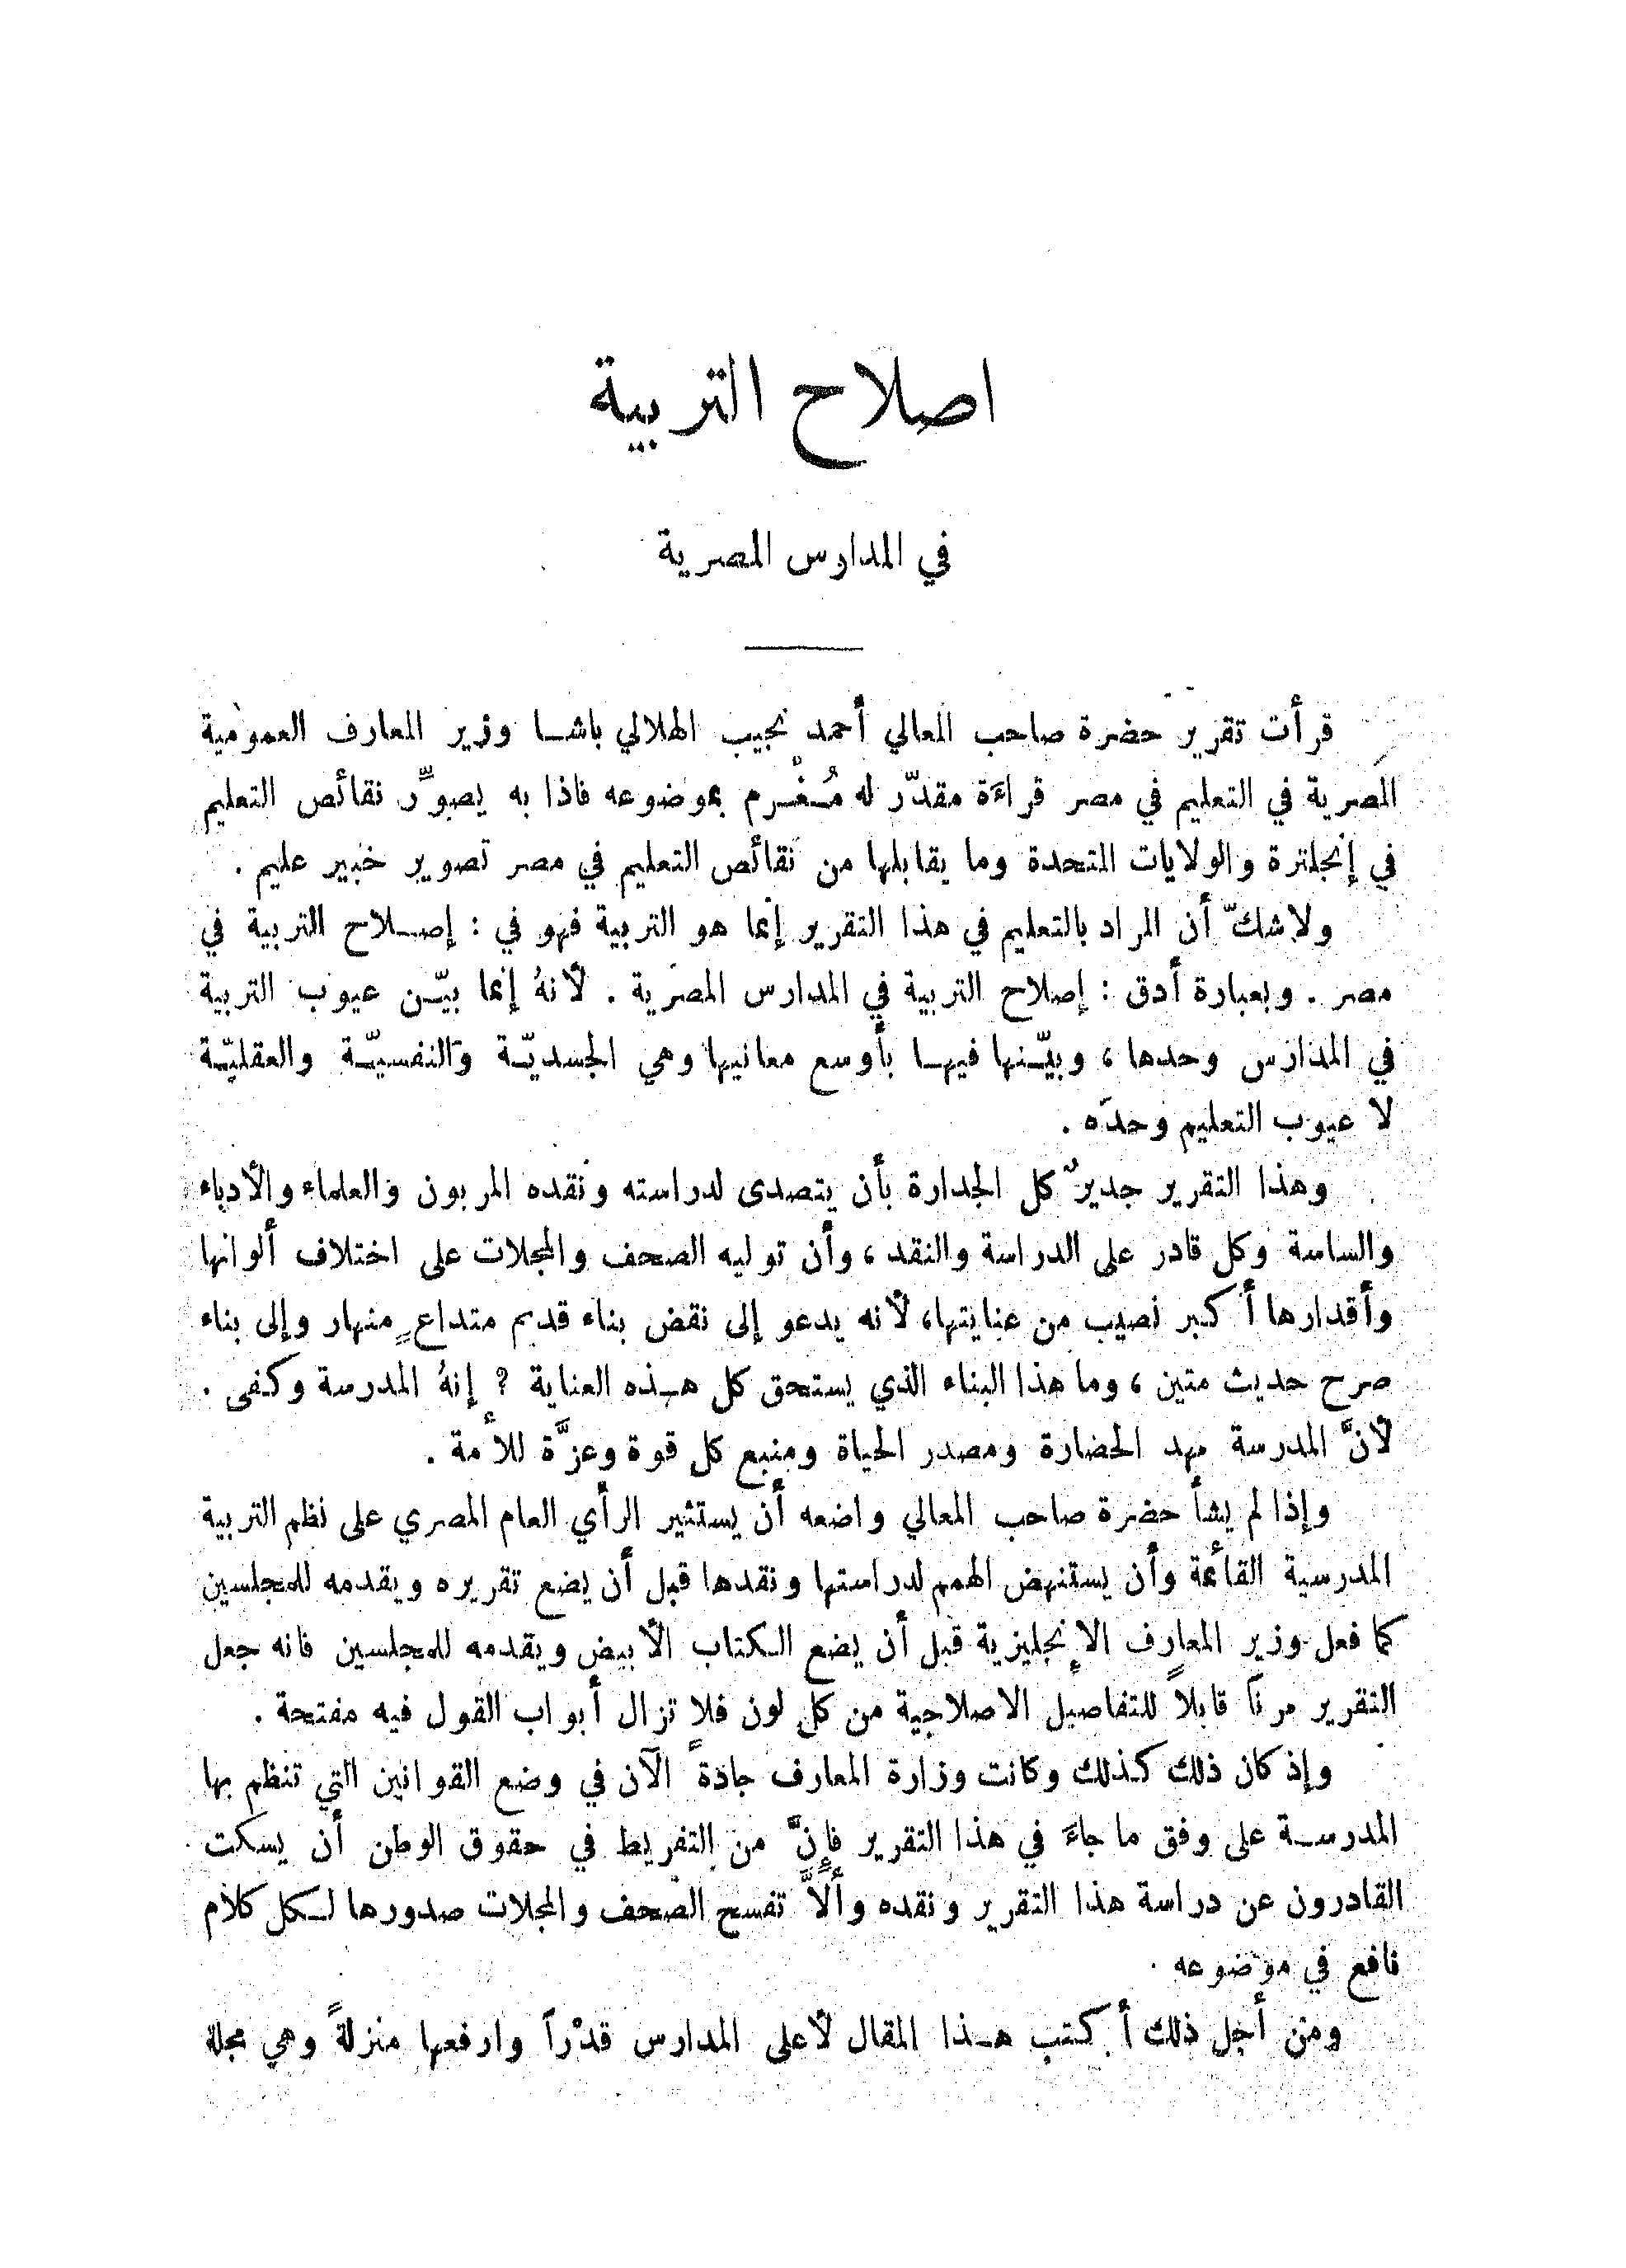 اصلاح التربية
في المدارس المصرية
قرأت تقرير حضرة صاحب المعالي أحمد نجيب الهلالي باشا وزير المعارف العمومية
المصرية في التعليم في مصر قراءة مقدّر له مُغْرم بموضوعه فاذا به يصوِّر نقائص التعليم
في إنجلترة والولايات المتحدة وما يقابلها من نقائص التعليم في مصر تصوير خبير عليم .
ولا شكّ أن المراد بالتعليم في هذا التقرير إنما هو التربية فهو في : إصلاح التربية في
مصر . وبعبارة أدق : إصلاح التربية في المدارس المصرية . لأنهُ إنما بيّن عيوب التربية
في المدارس وحدها ، وبيّنها فيها بأوسع معانيها وهي الجسديّة والنفسيّة والعقليّة
لا عيوب التعليم وحده .
وهذا التقرير جديرٌ كل الجدارة بأن يتصدى لدراسته ونقده المربون والعلماء والأدباء
والساسة وكل قادر على الدراسة والنقد ، وأن توليه الصحف والمجلات على اختلاف ألوانها
وأقدارها أكبر نصيب من عنايتها، لأنه يدعو إلى نقض بناء قديم متداعٍ منهار وإلى بناء
صرح حديث متين ، وما هذا البناء الذي يستحق كل هذه العناية ؟ إنهُ المدرسة وكفى .
لأنَّ المدرسة مهد الحضارة ومصدر الحياة ومنبع كل قوة وعزَّة للأمة .
وإذا لم يشأ حضرة صاحب المعالي واضعه أن يستثير الرأي العام المصري على نظم التربية
المدرسية القائمة وأن يستنهض الهمم لدراستها ونقدها قبل أن يضع تقريره ويقدمه للمجلسين
كما فعل وزير المعارف الإنجليزية قبل أن يضع الكتاب الأبيض ويقدمه للمجلسين فانه جعل
التقرير مرناً قابلاً للتفاصيل الاصلاحية من كل لون فلا تزال أبواب القول فيه مفتحة .
وإذ كان ذلك كذلك وكانت وزارة المعارف جادةً الآن في وضع القوانين التي تنظم بها
المدرسة على وفق ما جاءَ في هذا التقرير فإنَّ من التفريط في حقوق الوطن أن يسكت
القادرون عن دراسة هذا التقرير ونقده وألاَّ تفسح الصحف والمجلات صدورها لكل كلام
نافع في موضوعه .
ومن أجل ذلك أكتب هذا المقال لأعلى المدارس قدْراً وارفعها منزلةً وهي مجلة